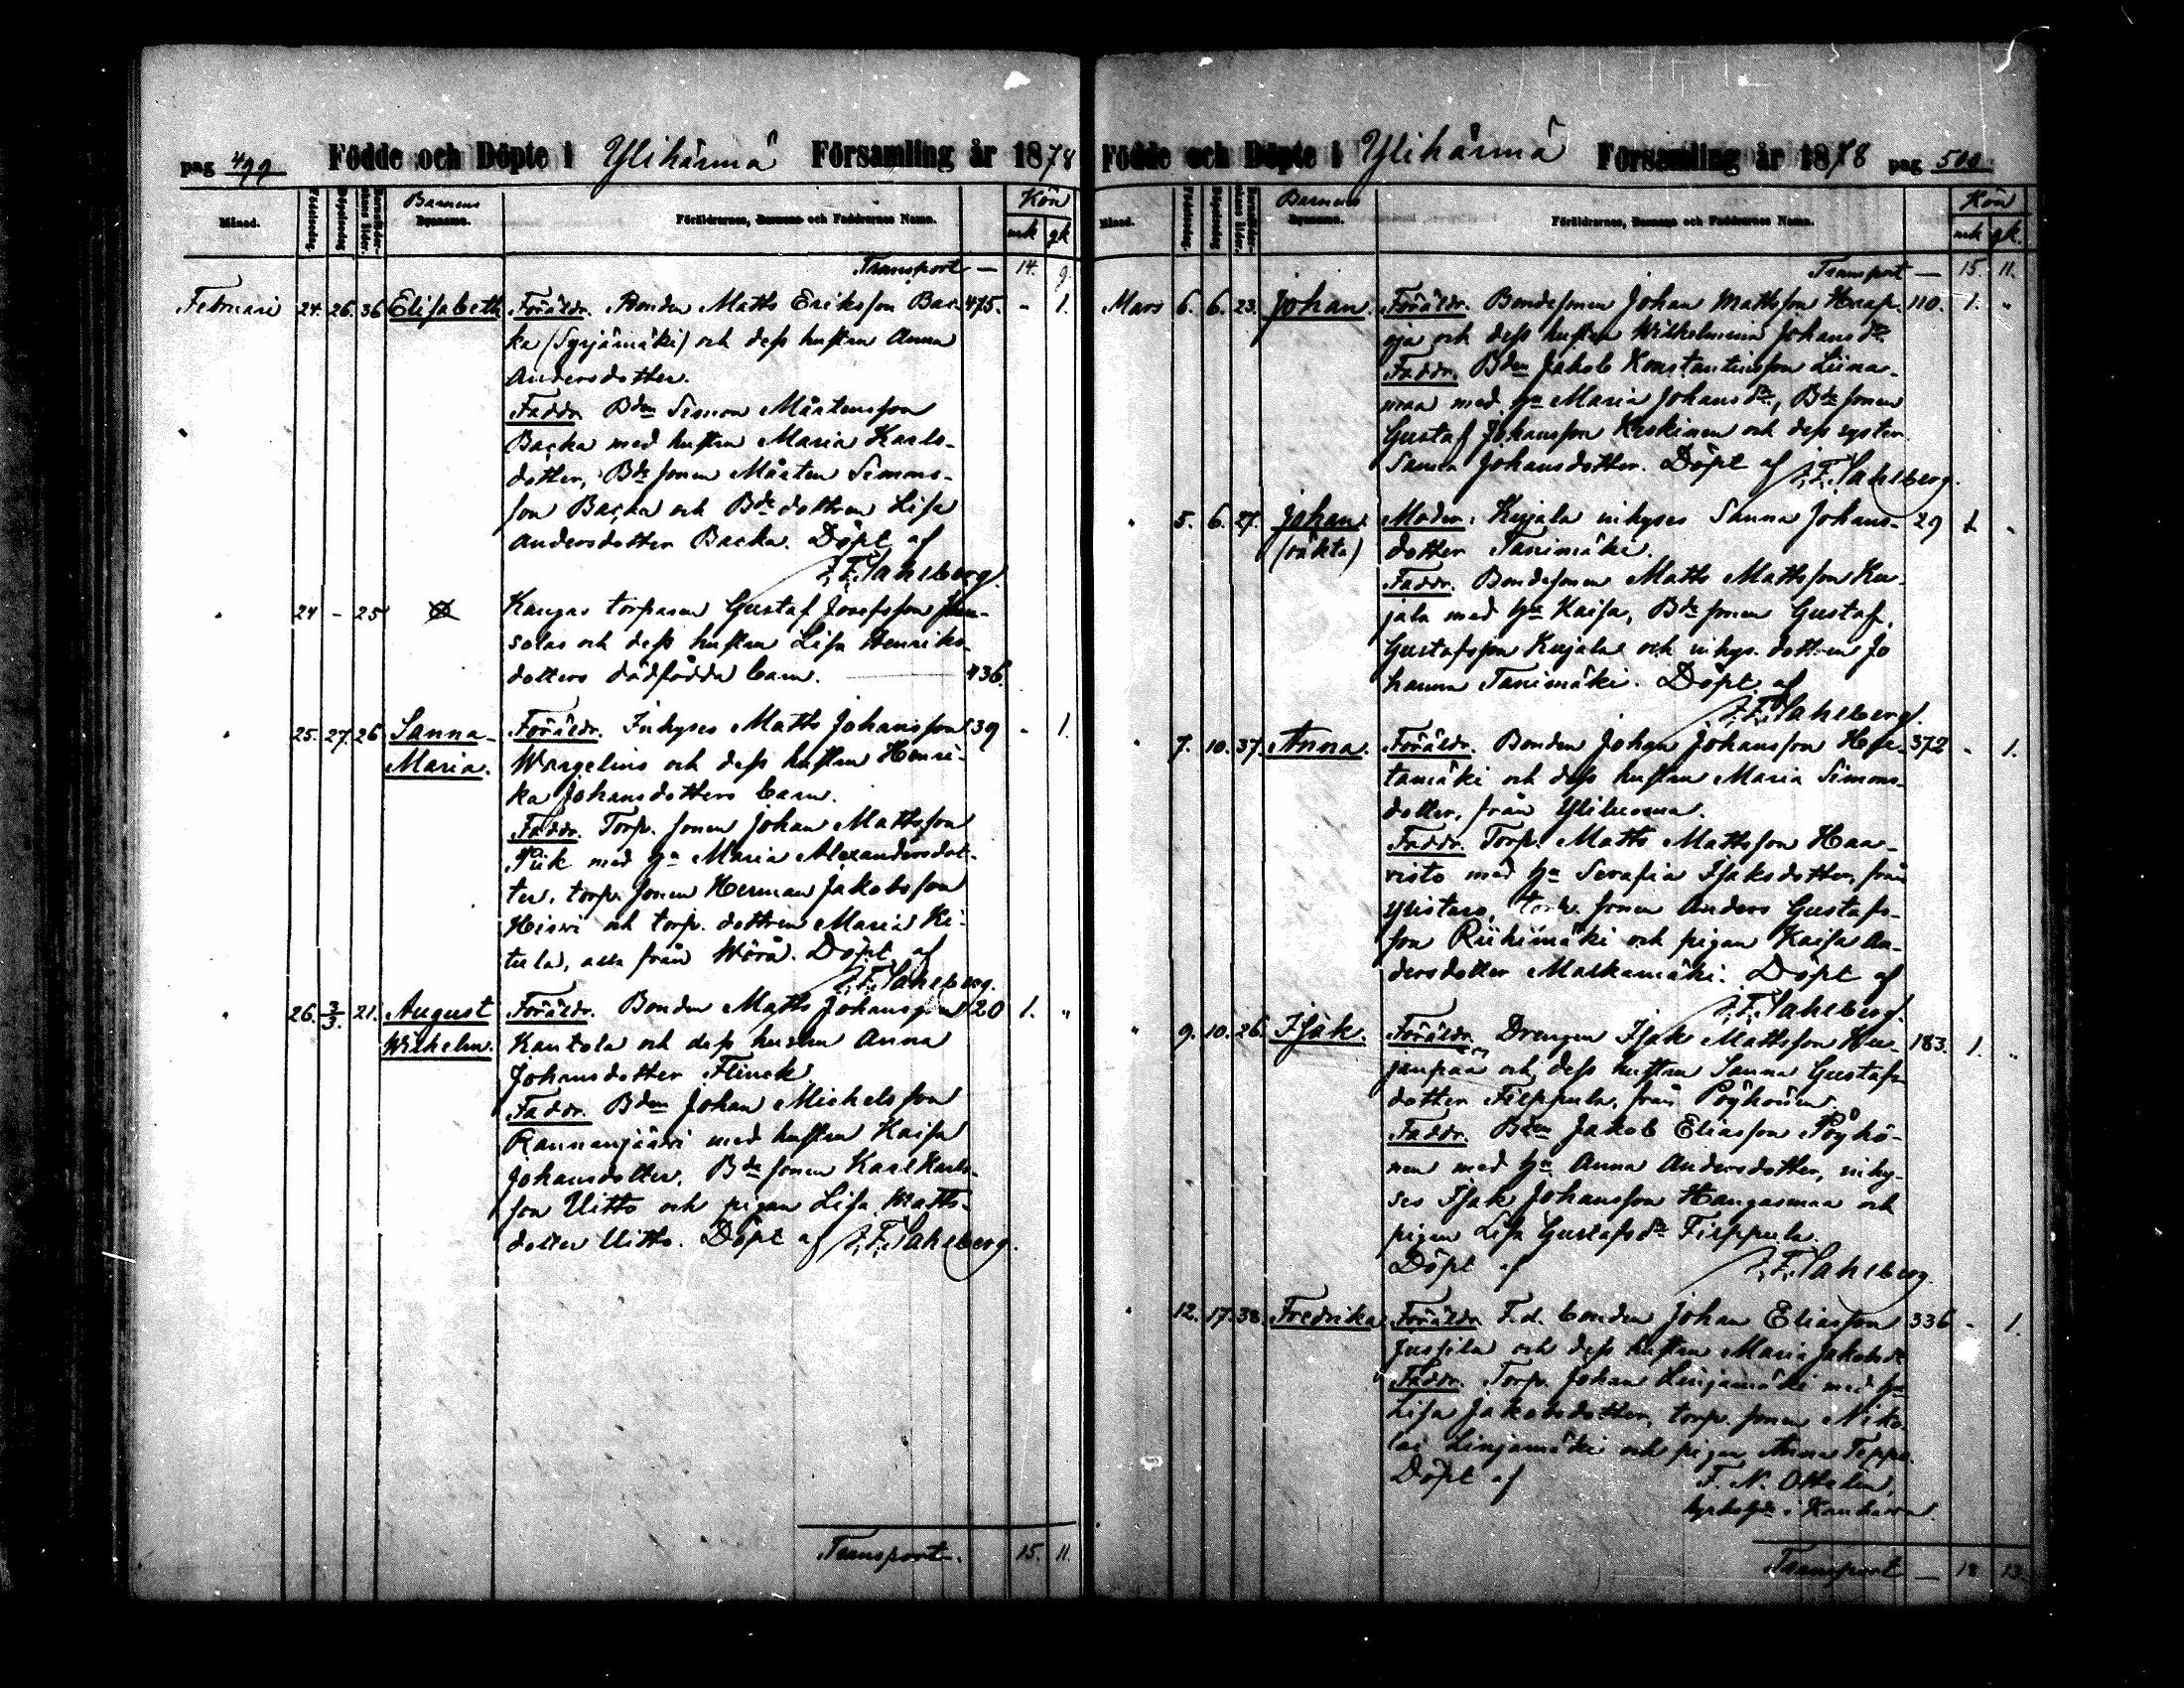 pag 499 Födde och Döpte i Ylihärmä Församling år 1878
Månad. Födelsedag. Döpelsedag. Barnens Föräldrarnes, Barnens och Faddrarnes Namn. Kön
mk qk
Transport — 14. 9.
Februari 24. 26. 36 Elisabeth Föräldr. Bonden Matts Eriksson Bac- 475. - 1.
ka (Syrjämäki) och dess hustru Anna
Andersdotter.
Faddr. Bden Simon Mårtensson
Backa med hustru Maria Karls-
dotter, Bde sonen Mårten Simons-
son Backa och Bde dottren Lisa
Andersdotter Backa. Döpt af
J. F. Sahlberg.
" 24 - 25 Kangas torparen Gustaf Josefsson
salas och dess hustru Lisa Henriks-
dotters dödfödda barn. 436.
" 25. 27. 26 Sanna- Föräldr. Inhyses Matts Johansson 39 - 1.
Maria. Wargelius och dess hustru Henri-
ka Johansdotters barn.
Faddr. Torp. sonen Johan Mattsson
Piik med hu Maria Alexandersdot-
ter, torp. sonen Herman Jakobsson
och torp. dottren Maria Ki-
tula, alla från Wörå. Döpt af
J. F. Sahlberg.
" 26. 3/3. 21. August Föräldr. Bonden Matts Johansson 120 1. "
Wilhelm. Kantola och dess hustru Anna
Johansdotter Flinck
Faddr. Bden Johan Michelsson
Rannanjärvi med hustru Kaisa
Johansdotter, Bde sonen Karl Karls-
son Uitto och pigan Lisa Matts-
dotter Uitto. Döpt af J. F. Sahlberg.
Transport. 15. 11.
Födde och Döpte i Ylihärmä Församling år 1878 pag 500
Månad. Födelsedag. Döpelsedag. Barnens Föräldrarnes, Barnens och Faddrarnes Namn. Kön
mk qk.
Transport — 15. 11.
Mars 6. 6. 23. Johan. Föräldr. Bondesonen Johan Mattsson Haap- 110. 1. "
oja och dess hustru Wilhelmina Johansdr.
Faddr. Bden Jakob Konstantinsson Liina-
maa med hu Maria Johansdr., Bde sonen
Gustaf Johansson Keskinen och dess syster
Sanna Johansdotter. Döpt af J. F. Sahlberg.
" 5. 6. 27. Johan. Moder: Kujala inhyses Sanna Johans- 29 1 "
(oäkta) dotter Tanimäki.
Faddr. Bondesonen Matts Mattsson Ku-
jala med hu Kaisa, Bde sonen Gustaf
Gustafsson Kujala och inhys. dottren Jo
hanna Tanimäki. Döpt af
J. F. Sahlberg.
" 7. 10. 37. Anna. Föräldr. Bonden Johan Johansson 372 - 1.
tamäki och dess hustru Maria Simons-
dotter, från
Faddr. Torp. Matts Mattsson Haa-
visto med hu Serafia Isaksdotter, från
Ylistaro, torp. sonen Anders Gustafs-
son Riihimäki och pigan Kaisa An-
dersdotter Malkamäki. Döpt af
J. F. Sahlberg.
" 9. 10. 26. Isak. Föräldr. Drengen Isak Mattsson Hu- 183. 1. "
janpää och dess hustru Sanna Gustafs
dotter Filppula, från Pöyhönen.
Faddr. Bden Jakob Eliasson Pöyhö-
nen med hu Anna Andersdotter, inhy-
ses Isak Johansson Hangasmaa och
pigan Lisa Gustafsdr Filppula.
Döpt af J. F. Sahlberg.
" 12. 17. 38. Fredrika Föräldr. F.d. bonden Johan Eliasson 336 - 1.
Jussila och dess hustru Maria Jakobsdr
Faddr. Torp. Johan Linjamäki med hu
Lisa Jakobsdotter, torp. sonen Niko
lai Linjamäki och pigan Anna Teppo.
Döpt af F. N. Ottelin,
i Kauhava
Transport — 18 13.